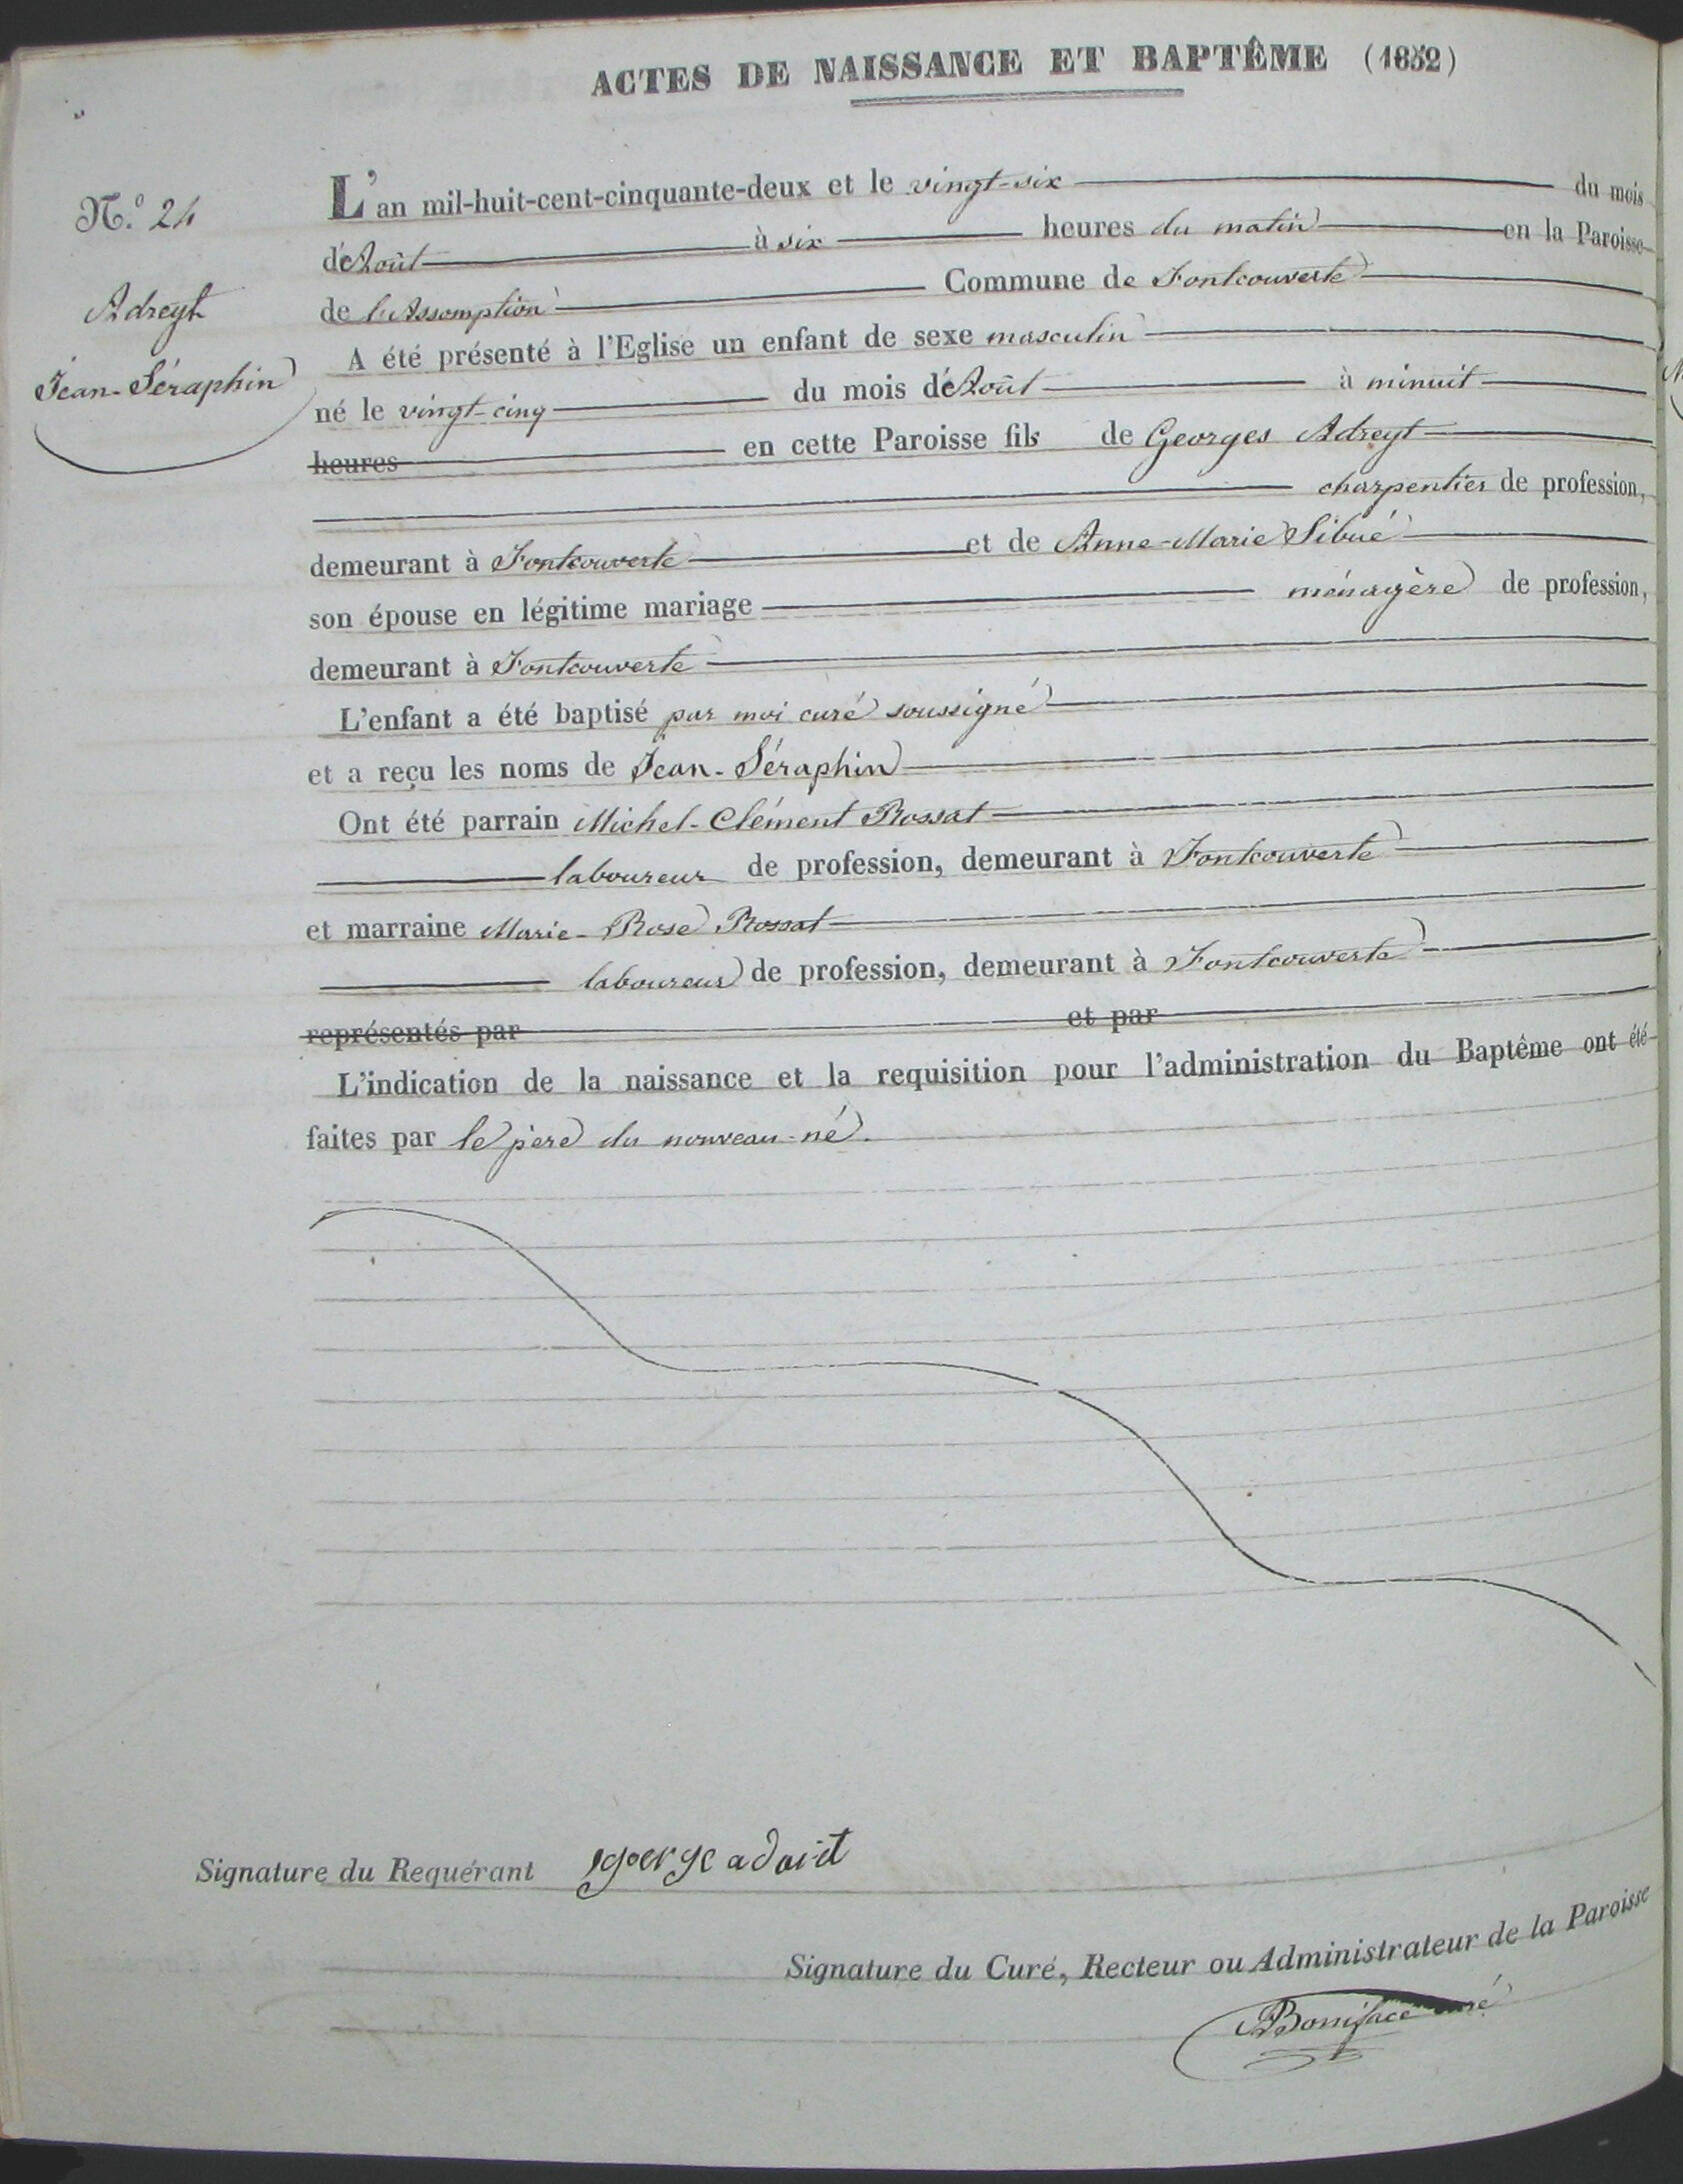 ACTES DE NAISSANCE ET BAPTÊME (1852)
N.º 24
Adreyt
Jean-Séraphin
L'an mil-huit-cent-cinquante-deux et le vingt-six du mois
d'Août à six heures du matin en la Paroisse
de l'Assomption Commune de Fontcouverte
A été présenté à l'Eglise un enfant de sexe masculin
né le vingt-cinq du mois d'Août à minuit
heures en cette Paroisse fils de Georges Adreyt
charpentier de profession,
demeurant à Fontcouverte et de Anne-Marie Sibué
son épouse en légitime mariage ménagère de profession,
demeurant à Fontcouverte
L'enfant a été baptisé par moi curé soussigné
et a reçu les noms de Jean-Séraphin
Ont été parrain Michel-Clément Rossat
laboureur de profession, demeurant à Fontcouverte
et marraine Marie-Rose Rossat
laboureur de profession, demeurant à Fontcouverte
représentés par et par
L'indication de la naissance et la requisition pour l'administration du Baptême ont été
faites par le père du nouveau-né.
Signature du Requérant george adait
Signature du Curé, Recteur ou Administrateur de la Paroisse
Boniface curé